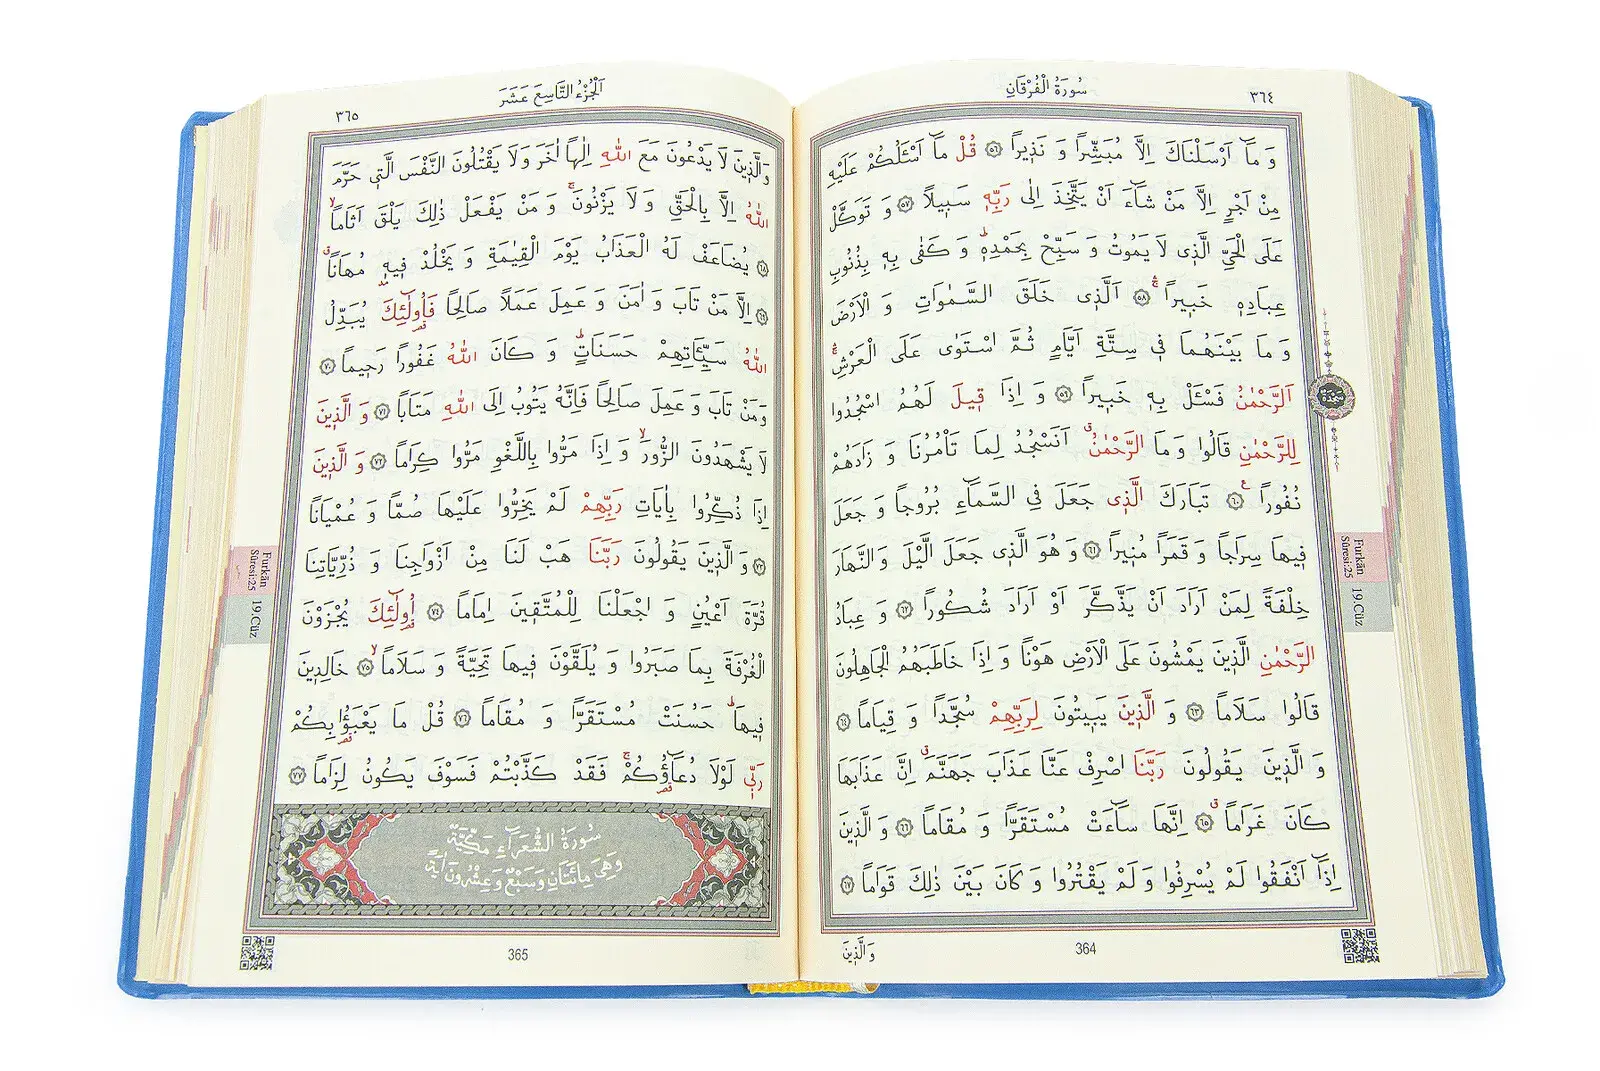 سُورَةُ الْفُرْقَانِ
٣٦٤
وَ مَٓا اَرْسَلْنَاكَ اِلَّا مُبَشِّرًا وَ نَذٖيرًا ﴿٥٦﴾ قُلْ مَٓا اَسْـَٔلُكُمْ عَلَيْهِ
مِنْ اَجْرٍ اِلَّا مَنْ شَٓاءَ اَنْ يَتَّخِذَ اِلٰى رَبِّهٖ سَبٖيلًا ﴿٥٧﴾ وَ تَوَكَّلْ
عَلَى الْحَيِّ الَّذٖى لَا يَمُوتُ وَ سَبِّحْ بِحَمْدِهٖؕ وَ كَفٰى بِهٖ بِذُنُوبِ
عِبَادِهٖ خَبٖيرًاۚ ﴿٥٨﴾ اَلَّذٖى خَلَقَ السَّمٰوَاتِ وَ الْاَرْضَ
وَ مَا بَيْنَهُمَا فٖى سِتَّةِ اَيَّامٍ ثُمَّ اسْتَوٰى عَلَى الْعَرْشِۚ
اَلرَّحْمٰنُ فَسْـَٔلْ بِهٖ خَبٖيرًا ﴿٥٩﴾ وَ اِذَا قٖيلَ لَهُمُ اسْجُدُوا
لِلرَّحْمٰنِ قَالُوا وَ مَا الرَّحْمٰنُۗ اَنَسْجُدُ لِمَا تَاْمُرُنَا وَ زَادَهُمْ
نُفُورًا ﴿٦٠﴾ تَبَارَكَ الَّذٖى جَعَلَ فِى السَّمَٓاءِ بُرُوجًا وَ جَعَلَ
فٖيهَا سِرَاجًا وَ قَمَرًا مُنٖيرًا ﴿٦١﴾ وَ هُوَ الَّذٖى جَعَلَ الَّيْلَ وَ النَّهَارَ
خِلْفَةً لِمَنْ اَرَادَ اَنْ يَذَّكَّرَ اَوْ اَرَادَ شُكُورًا ﴿٦٢﴾ وَ عِبَادُ
الرَّحْمٰنِ الَّذٖينَ يَمْشُونَ عَلَى الْاَرْضِ هَوْنًا وَ اِذَا خَاطَبَهُمُ الْجَاهِلُونَ
قَالُوا سَلَامًا ﴿٦٣﴾ وَ الَّذٖينَ يَبٖيتُونَ لِرَبِّهِمْ سُجَّدًا وَ قِيَامًا ﴿٦٤﴾
وَ الَّذٖينَ يَقُولُونَ رَبَّنَا اصْرِفْ عَنَّا عَذَابَ جَهَنَّمَۗ اِنَّ عَذَابَهَا
كَانَ غَرَامًاۗ ﴿٦٥﴾ اِنَّهَا سَٓاءَتْ مُسْتَقَرًّا وَ مُقَامًا ﴿٦٦﴾ وَ الَّذٖينَ
اِذَٓا اَنْفَقُوا لَمْ يُسْرِفُوا وَ لَمْ يَقْتُرُوا وَ كَانَ بَيْنَ ذٰلِكَ قَوَامًا ﴿٦٧﴾
سجده
Furkân
Sûresi:25
19.Cüz
364
وَ الَّذٖينَ
اَلْجُزْءُ التَّاسِعَ عَشَرَ
٣٦٥
وَ الَّذٖينَ لَا يَدْعُونَ مَعَ اللّٰهِ اِلٰهًا اٰخَرَ وَ لَا يَقْتُلُونَ النَّفْسَ الَّتٖى حَرَّمَ
اللّٰهُ اِلَّا بِالْحَقِّ وَ لَا يَزْنُونَۚ وَ مَنْ يَفْعَلْ ذٰلِكَ يَلْقَ اَثَامًاۙ
﴿٦٨﴾ يُضَاعَفْ لَهُ الْعَذَابُ يَوْمَ الْقِيٰمَةِ وَ يَخْلُدْ فٖيهٖ مُهَانًاۗ
﴿٦٩﴾ اِلَّا مَنْ تَابَ وَ اٰمَنَ وَ عَمِلَ عَمَلًا صَالِحًا فَاُولٰٓئِكَ يُبَدِّلُ
اللّٰهُ سَيِّـَٔاتِهِمْ حَسَنَاتٍؕ وَ كَانَ اللّٰهُ غَفُورًا رَحٖيمًا ﴿٧٠﴾
وَ مَنْ تَابَ وَ عَمِلَ صَالِحًا فَاِنَّهُ يَتُوبُ اِلَى اللّٰهِ مَتَابًا ﴿٧١﴾ وَ الَّذٖينَ
لَا يَشْهَدُونَ الزُّورَۙ وَ اِذَا مَرُّوا بِاللَّغْوِ مَرُّوا كِرَامًا ﴿٧٢﴾ وَ الَّذٖينَ
اِذَا ذُكِّرُوا بِاٰيَاتِ رَبِّهِمْ لَمْ يَخِرُّوا عَلَيْهَا صُمًّا وَ عُمْيَانًا
﴿٧٣﴾ وَ الَّذٖينَ يَقُولُونَ رَبَّنَا هَبْ لَنَا مِنْ اَزْوَاجِنَا وَ ذُرِّيَّاتِنَا
قُرَّةَ اَعْيُنٍ وَ اجْعَلْنَا لِلْمُتَّقٖينَ اِمَامًا ﴿٧٤﴾ اُولٰٓئِكَ يُجْزَوْنَ
الْغُرْفَةَ بِمَا صَبَرُوا وَ يُلَقَّوْنَ فٖيهَا تَحِيَّةً وَ سَلَامًاۙ ﴿٧٥﴾ خَالِدٖينَ
فٖيهَاؕ حَسُنَتْ مُسْتَقَرًّا وَ مُقَامًا ﴿٧٦﴾ قُلْ مَا يَعْبَؤُا بِكُمْ
رَبّٖى لَوْلَا دُعَٓاؤُكُمْۚ فَقَدْ كَذَّبْتُمْ فَسَوْفَ يَكُونُ لِزَامًا ﴿٧٧﴾
سُورَةُ الشُّعَرَٓاءِ مَكِّيَّةٌ
وَ هِىَ مِائَتَانِ وَ سَبْعٌ وَ عِشْرُونَ اٰيَةً
Furkân
Sûresi:25
19.Cüz
365